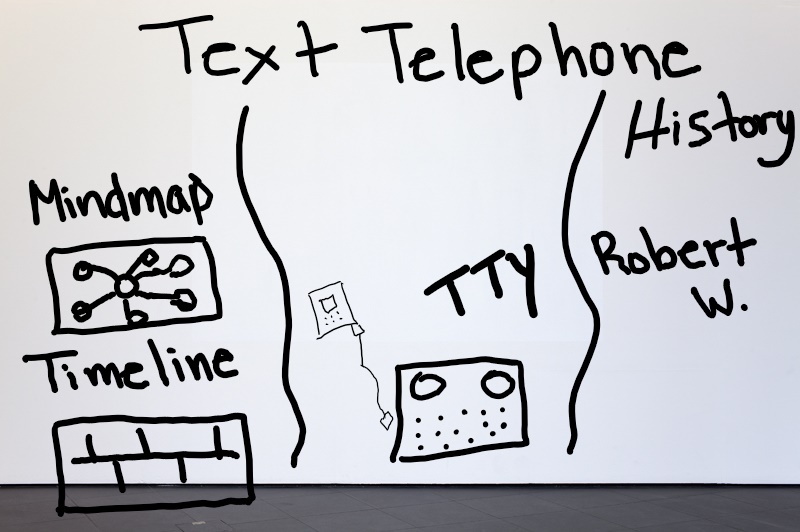 Text Telephone
Mindmap
Timeline
TTY
History
Robert
W.